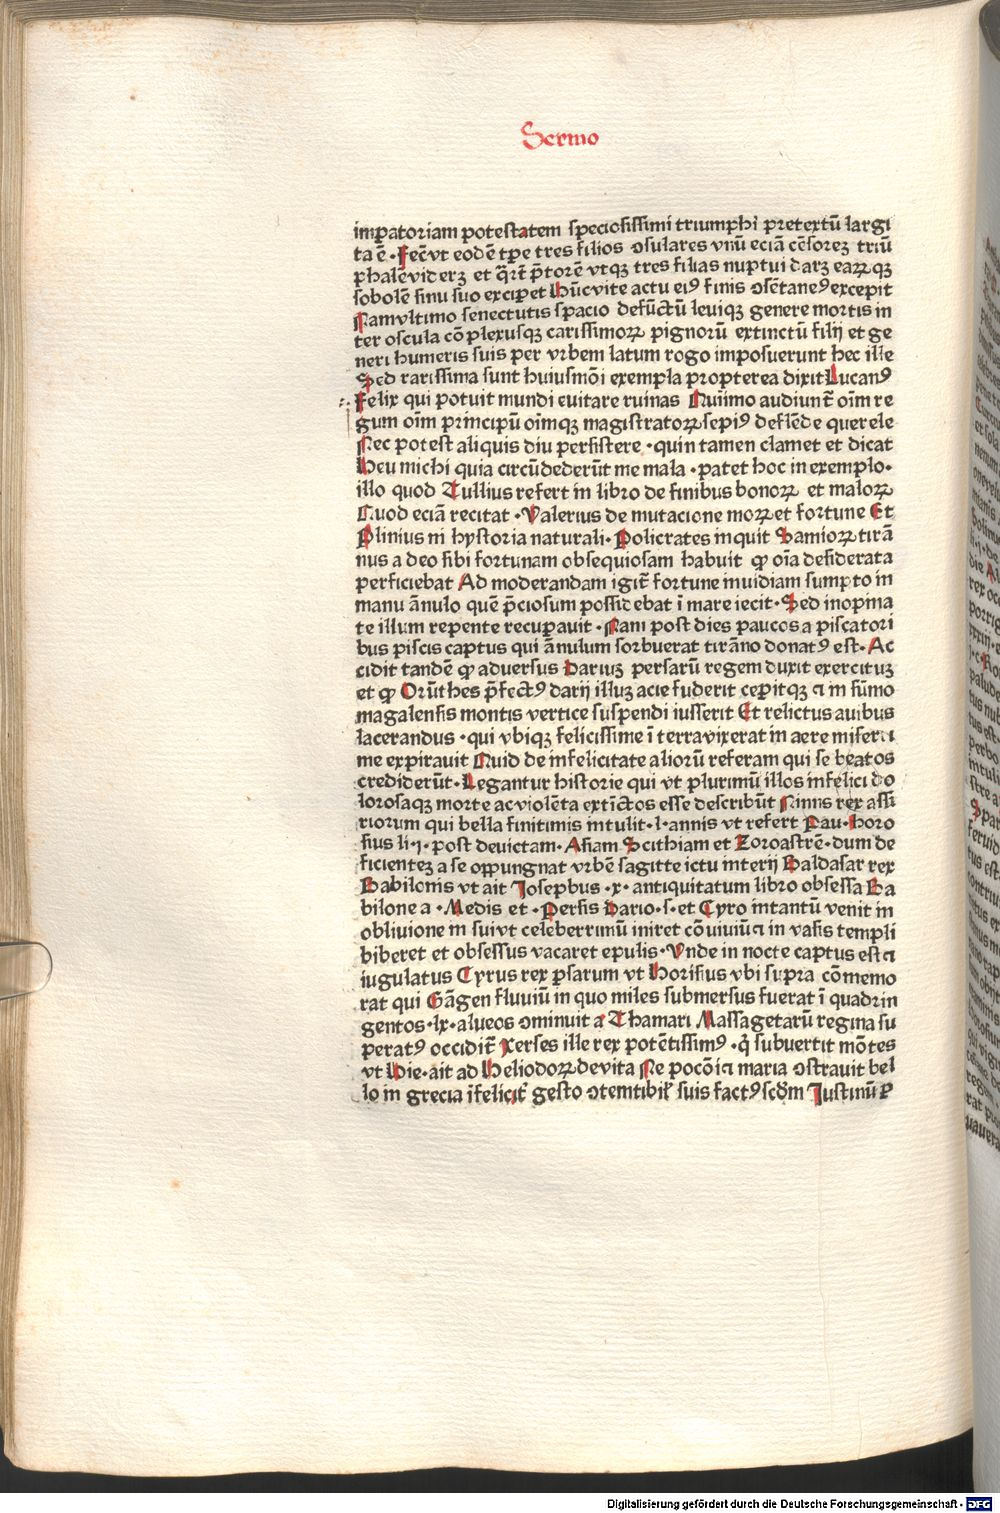 Sermo
imꝑatoriam potestatem speciosissimi triumphi pretextū largi
ta ē · Fec̄vt eodē tꝑe tres filios ɔsulares vnū eciā cēsoreꝫ triū
phalēvidereꝫ et q̄rt̄ p̄torē vtqꝫ tres filias nuptui dareꝫ eaꝝqꝫ
sobolē sinu suo exciperet Hūcvite actu eiꝰ finis ɔsētaneꝰ excepit
Namvltimo senectutis spacio defūctū leuiqꝫ genere mortis in
ter oscula cō plexusqꝫ carissimoꝝ pignorū extinctū filij et ge
neri humeris suis per vrbem latum rogo imposuerunt hec ille
Sed rarissima sunt huiusmōi exempla propterea dixit Lucanꝰ
Felix qui potuit mundi euitare ruinas Quīimo audiunt̄ oīm re
gum oīm principū oīmqꝫ magistratoꝝ sepiꝰ deflēde querele
Nec potest aliquis diu persistere · quin tamen clamet et dicat
Heu michi quia circūdederūt me mala · patet hoc in exemplo ·
illo quod Tullius refert in libro de finibus bonoꝝ et maloꝝ
Quod eciā recitat · Valerius de mutacione moꝝ et fortune Et
Plinius in hystoria naturali · Policrates inquit Samioꝝ tirā
nus a deo sibi fortunam obsequiosam habuit ꝙ oīa desiderata
perficiebat Ad moderandam igit̄ fortune inuidiam sumpto in
manu ānulo quē p̄ciosum possidebat ī mare iecit · Sed inopina
te illum repente recuꝑauit · Nam post dies paucos a piscatori
bus piscis captus qui ānulum sorbuerat tirāno donatꝰ est · Ac
cidit tandē ꝙ aduersus Dariuꝫ persarū regem duxit exercituꝫ
et ꝙ Orūthes p̄fectꝰ darij illuꝫ acie fuderit cepitqꝫ ⁊ in sūmo
magalensis montis vertice suspendi iusserit Et relictus auibus
lacerandus · qui vbiqꝫ felicissime ī terravixerat in aere miserri
me expirauit Quid de infelicitate aliorū referam qui se beatos
crediderūt · Legantur historie qui vt plurimū illos infelici do
lorosaqꝫ morte ac violēta extīctos esse describūt Ninus rex assi
riorum qui bella finitimis intulit · l · annis vt refert Pau · Horo
sius li · j · post deuictam · Asiam Scithiam et Zoroastrē · dum de
ficienteꝫ a se oppungnat vrbē sagitte ictu interij Baldasar rex
Babilonis vt ait Josephus · x · antiquitatum libro obsessa Ba
bilone a · Medis et · Persis Dario · s · et Cyro intantū venit in
obliuione in suivt celeberrimū iniret cō uiuiū ⁊ in vasis templi
biberet et obsessus vacaret epulis · Vnde in nocte captus est ⁊
iugulatus Cyrus rex ꝑsarum vt Horisius vbi supra cōmemo
rat qui Gāgen fluuiū in quo miles submersus fuerat ī quadrin
gentos · lx · alueos ɔminuit a Thamari Massagetarū regina su
peratꝰ occidit̄ Xerses ille rex potētissimꝰ · q̇ subuertit mōtes
vt Hie · ait ad Heliodoꝝ devita Ne pocōi ⁊ maria ɔstrauit bel
lo in grecia īfelicit̄ gesto ɔtemtibil̓ suis factꝰ scd̄m Justinū ꝑ
Digitalisierung gefördert durch die Deutsche Forschungsgemeinschaft - DFG